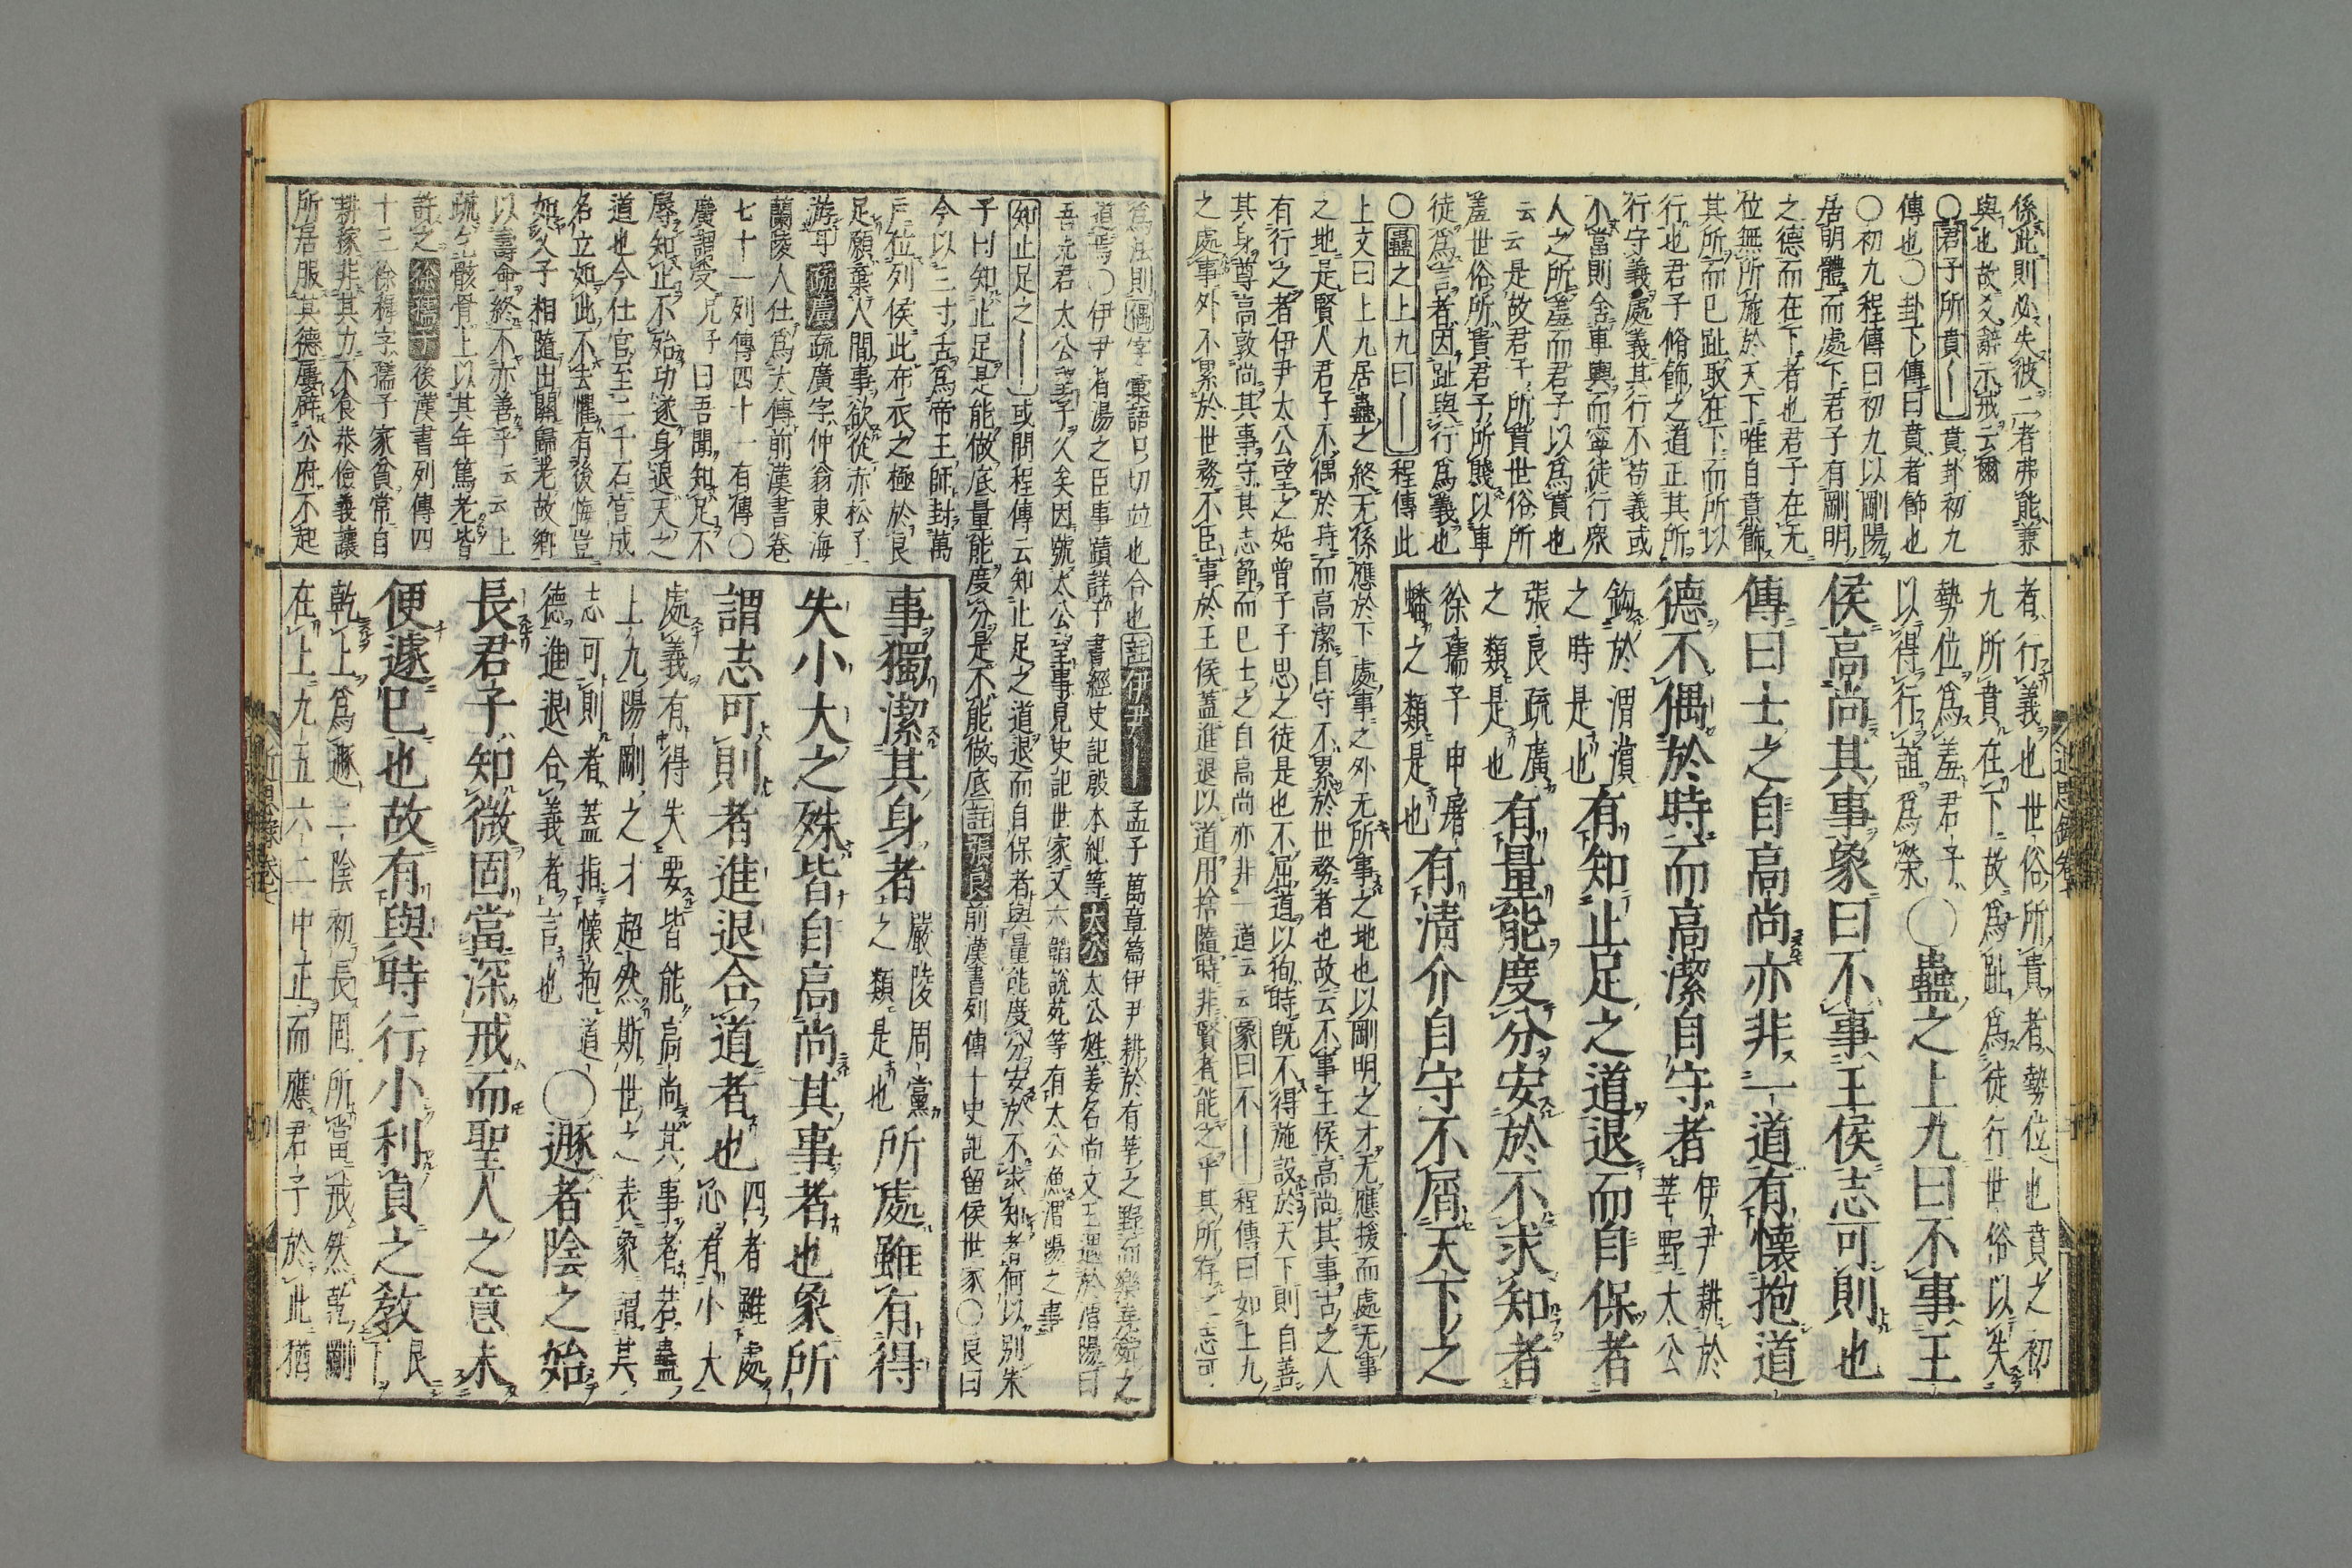 係此則必失彼二者弗能兼
與也故爻辭示戒云爾
○君子所賁｜賁卦初九
傳也○卦下傳曰賁者飾也
○初九程傳曰初九以剛陽
居明體而處下君子有剛明
之德而在下者也君子在无
位無所施於天下唯自賁飾
其所而已趾取在下而所以
行也君子脩飾之道正其所
行守義處義其行不苟義或
不當則舍車輿而寧徒行衆
人之所羞而君子以爲賁也
云云是故君子所貴世俗所
羞世俗所貴君子所賤以車
徒爲言者因趾與行爲義也
○蠱之上九曰｜程傳此
上文曰上九居蠱之終无係應於下處事之外无所事之地也以剛明之才无應援而處无事
之地是賢人君子不偶於時而高潔自守不累於世務者也故云不事王侯高尚其事古之人
有行之者伊尹太公望之始曾子子思之徒是也不屈道以徇時旣不得施設於天下則自善
其身尊高敦尚其事守其志節而已士之自高尚亦非一道云云象曰不｜程傳曰如上九
之處事外不累於世務不臣事於王侯蓋進退以道用捨隨時非賢者能之乎其所存之志可
者行義也世俗所貴者勢位也賁之初
九所賁在下故爲趾爲徒行世俗以失
勢位爲羞君子
以得行誼爲榮○蠱之上九曰不事王
侯高尚其事象曰不事王侯志可則也
傳曰士之自高尚亦非一道有懷抱道
德不偶於時而高潔自守者伊尹耕於莘野太公
釣於渭濱之時是也有知止足之道退而自保者
張良疏廣之類是也有量能度分安於不求知者
徐孺子申屠蟠之類是也有淸介自守不屑天下之
爲法則偶字彙語口切竝也合也註伊尹｜孟子萬章篇伊尹耕於有莘之野而樂堯舜之
道焉○伊尹者湯之臣事蹟詳于書經史記殷本紀等太公太公姓姜名尚文王遇於渭陽曰
吾先君太公望子久矣因號太公望事見史記世家又六韜說苑等有太公漁渭陽之事
知止足之｜或問程傳云知止足之道退而自保者與量能度分安於不求知者何以別朱
子曰知止足是能做底量能度分是不能做底註張良前漢書列傳十史記留侯世家○良曰
今以三寸舌爲帝王師封萬
戶位列侯此布衣之極於良
足願棄人間事欲從赤松子
游耳疏廣疏廣字仲翁東海
蘭陵人仕爲太傅前漢書卷
七十一列傳四十一有傳○
廣謂受兄子曰吾聞知足不
辱知止不殆功遂身退天之
道也今仕官至二千石宦成
名立如此不去懼有後悔豈
如父子相隨出關歸老故鄕
以壽命終不亦善乎云云上
疏乞骸骨上以其年篤老皆
許之徐孺子後漢書列傳四
十三徐穉字孺子家貧常自
耕稼非其力不食恭儉義讓
所居服其德屢辟公府不起
事獨潔其身者嚴陵周黨之類是也所處雖有得
失小大之殊皆自高尚其事者也象所
謂志可則者進退合道者也四者雖處心有小大
處義有得失要皆能高尚其事者若蠱
上九陽剛之才超然斯世之表象謂其
志可則者蓋指懷抱道
德進退合義者言也○遯者陰之始
長君子知微固當深戒而聖人之意未
便遽已也故有與時行小利貞之敎艮下
乾上爲遯二陰初長固所當戒然乾剛
在上九五六二中正而應君子於此猶